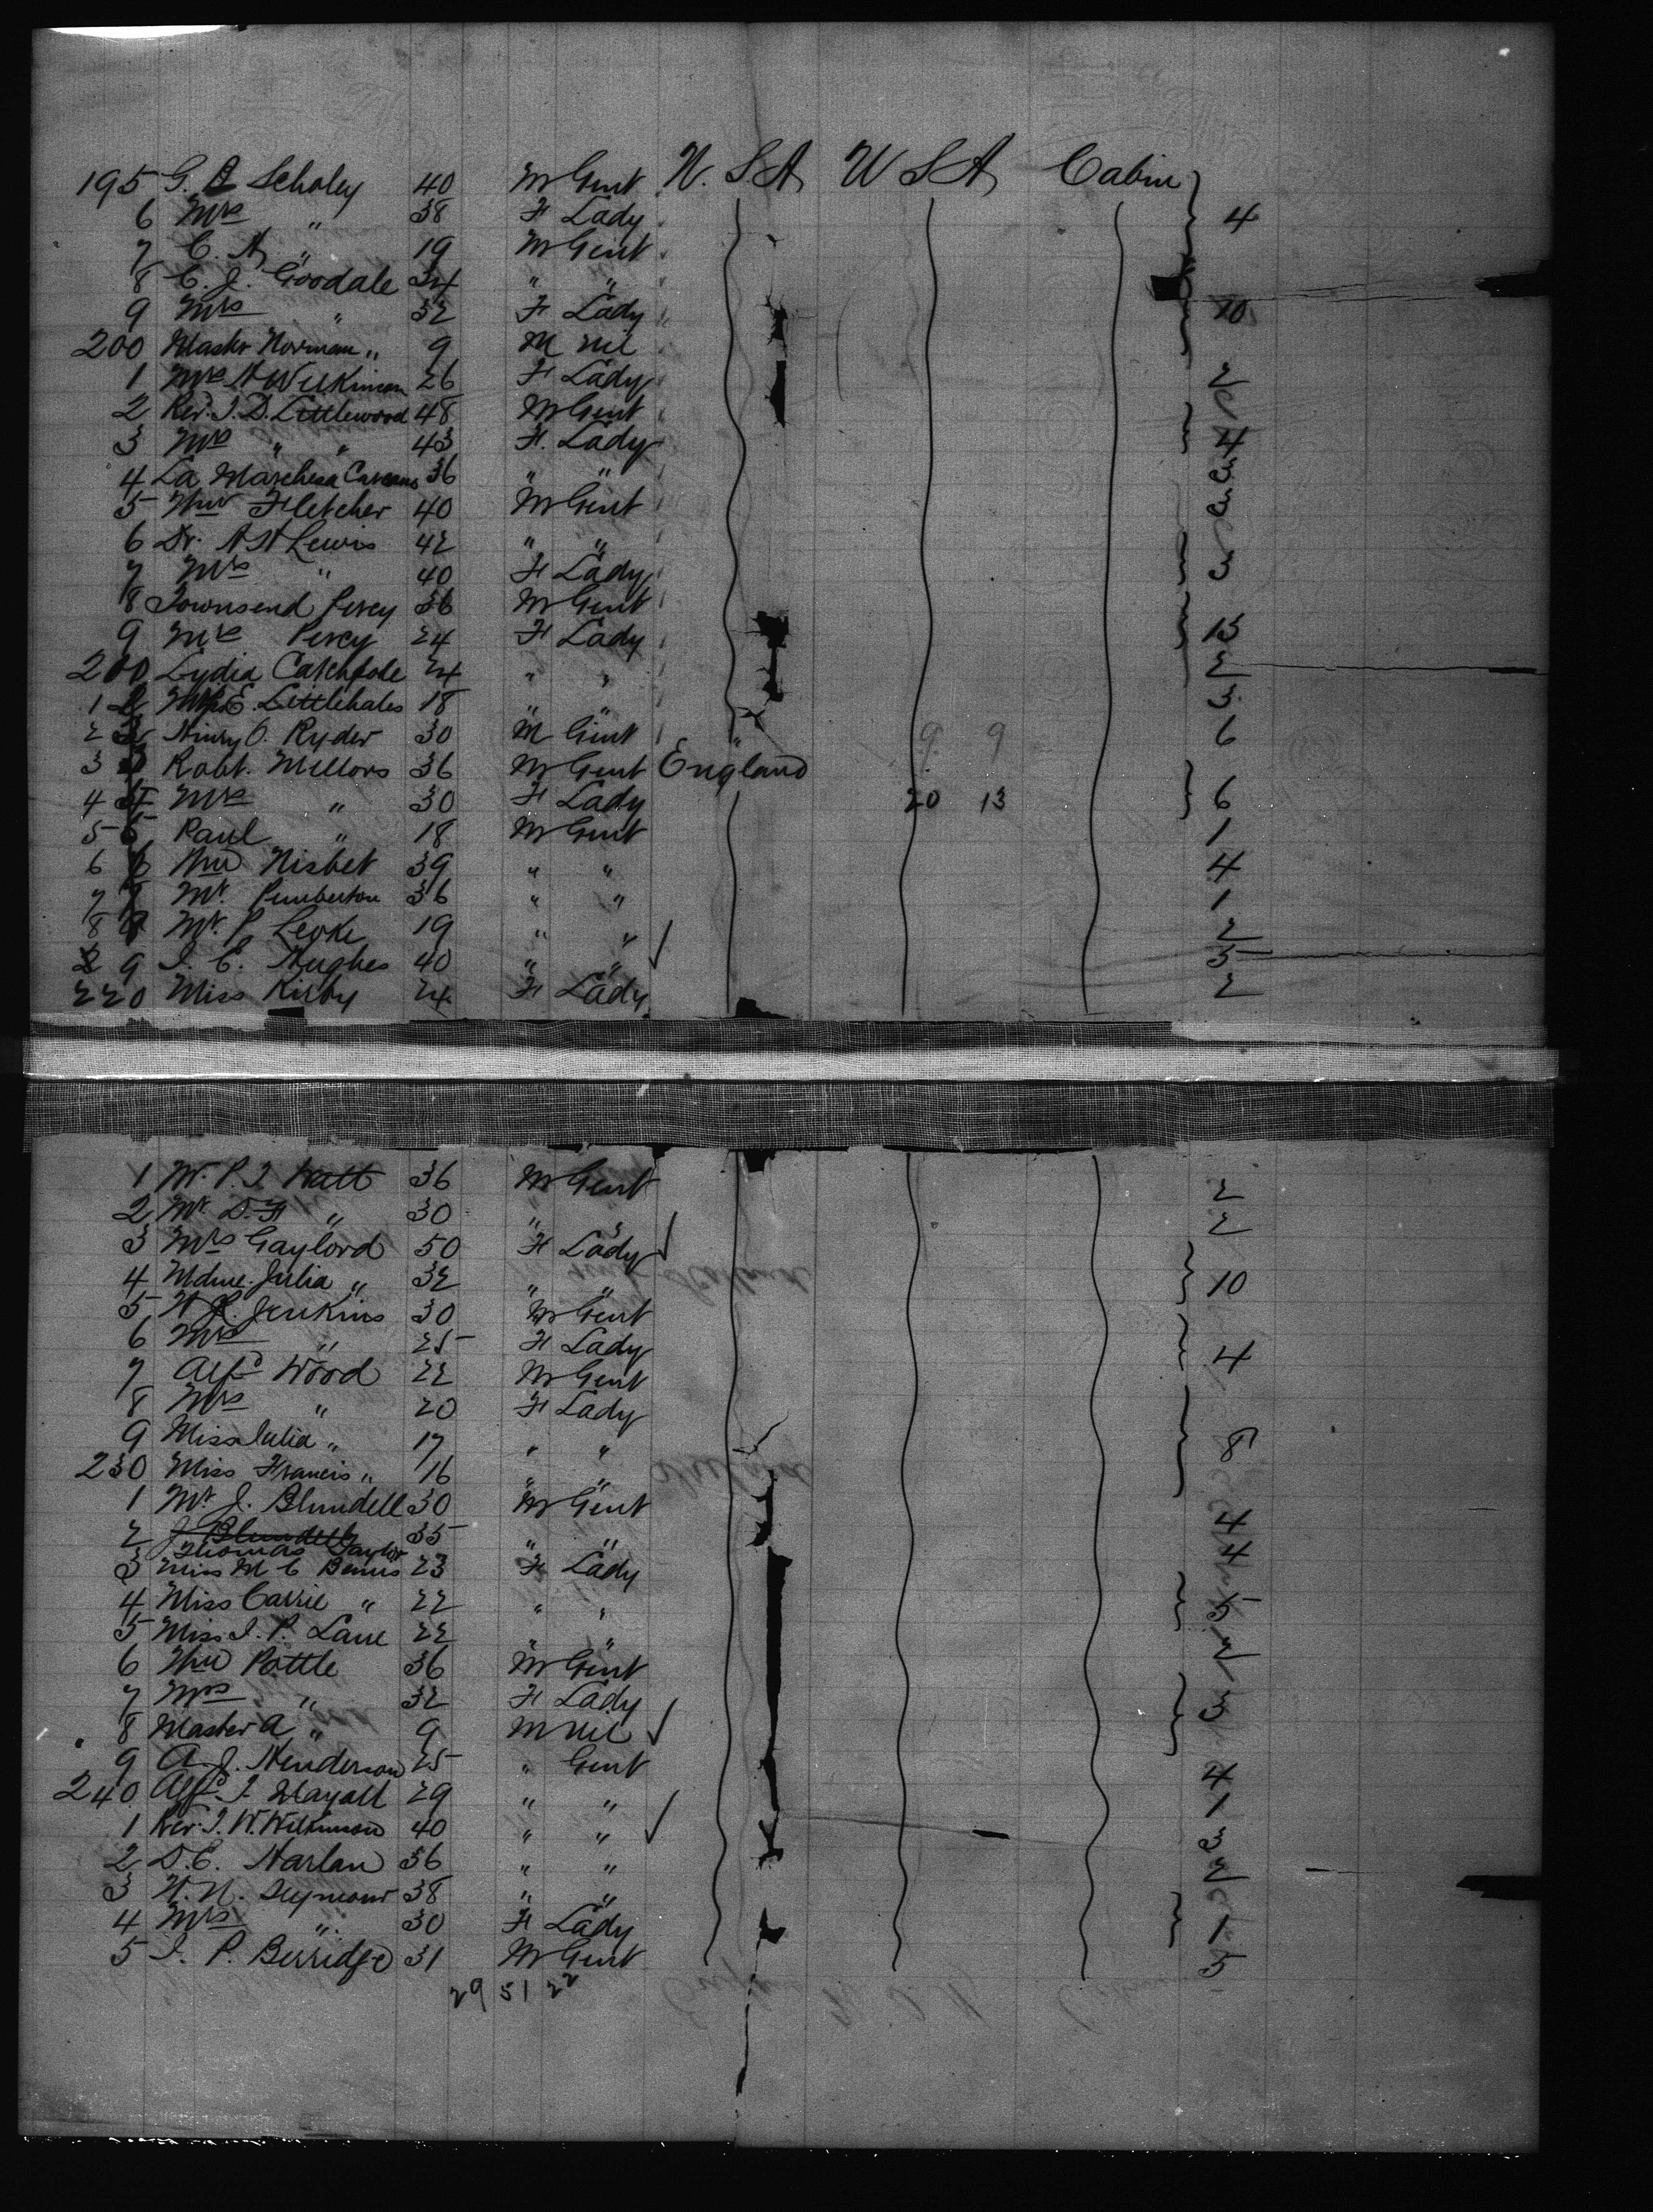 195 G. Scholey 40 M Gent U.S.A U S A Cabin
6 Mrs " 38 F Lady 4
7 C. A. " 19 M Gent
8 C. J. Goodale 34 " "
9 Mrs " 32 F Lady 10
200 Master Norman " 9 M nil
1 Mrs A Wilkinson 26 F Lady 2
2 Rev. J. D. Littlewood 48 M Gent
3 Mrs " " 43 F. Lady 4
4 La Marchesa 36 " " 3
5 Wm Fletcher 40 M Gent 3
6 Dr. A H Lewis 42 " "
7 Mrs " 40 F Lady 3
8 Townsend Percy 36 M Gent
9 Mrs Percy 24 F Lady 13
Lydia Catchpole 24 " " 2
1 E. Littlehales 18 " " 3
2 Henry O. Ryder 30 M Gent 9 9 6
3 Robt. Mellors 36 M Gent England
4 Mrs " 30 F Lady 20 13 6
5 Paul " 18 M Gent 1
6 Wm Nisbet 39 " " 4
7 Mr. Pemberton 36 " " 1
8 Mr. P. Leoke 19 " " 2
9 J. E. Hughes 40 " " 5
220 Miss Kirby 24 F Lady 2
1 W. P. J. Watt 36 M Gent 2
2 Mr D. F " 30 " " 2
3 Mrs Gaylord 50 F Lady
4 Mdme. Julia " 32 " " 10
5 Jenkins 30 M Gent
6 Mrs " 25 F Lady 4
7 Alfd Wood 22 M Gent
8 Mrs " 20 F Lady
9 Miss Julia " 17 " " 8
230 Miss Francis " 16 " "
1 Mr J. Blundell 30 M Gent 4
2 J Blundell 35 " " 4
Thomas Taylor
3 Miss M C Bemis 23 F Lady
4 Miss Carrie " 22 " " 5
5 Miss J. P. Lane 22 " " 2
6 Wm Pottle 36 M Gent
7 Mrs " 32 F Lady 3
8 Master A " 9 M nil
9 A. J. Henderson 25 " Gent 4
240 Alfd J. Mayall 29 " " 1
1 Rev. J. W. Wilkinson 40 " " 3
2 D. E. Harlan 36 " " 2
3 Seymour 38 " "
4 Mrs " 30 F Lady 1
5 J. P. Berridge 31 M Gent 5
29 51 22